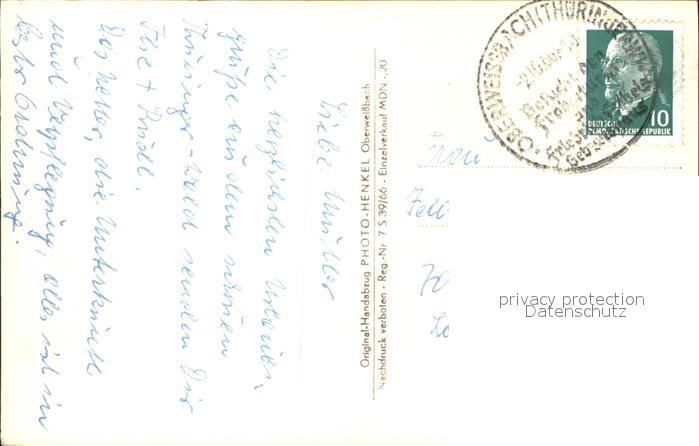 Liebe Mutter
Die herzlichsten Urlaubs-
grüße aus dem schönen
Thüringer-Wald senden Dir
Ilse + Rudi.
Das Wetter, die Unterkunft
und Verpflegung, alles ist in
bester Ordnung.
Original-Handabzug PHOTO-HENKEL Oberweißbach
Nachdruck verboten - Reg.-Nr 7 S 39/66 - Einzelverkauf MDN -,20
OBERWEISSBACH (THÜRINGER
DEUTSCHE
DEMOKRATISCHE REPUBLIK
10
Frau
privacy protection
Datenschutz